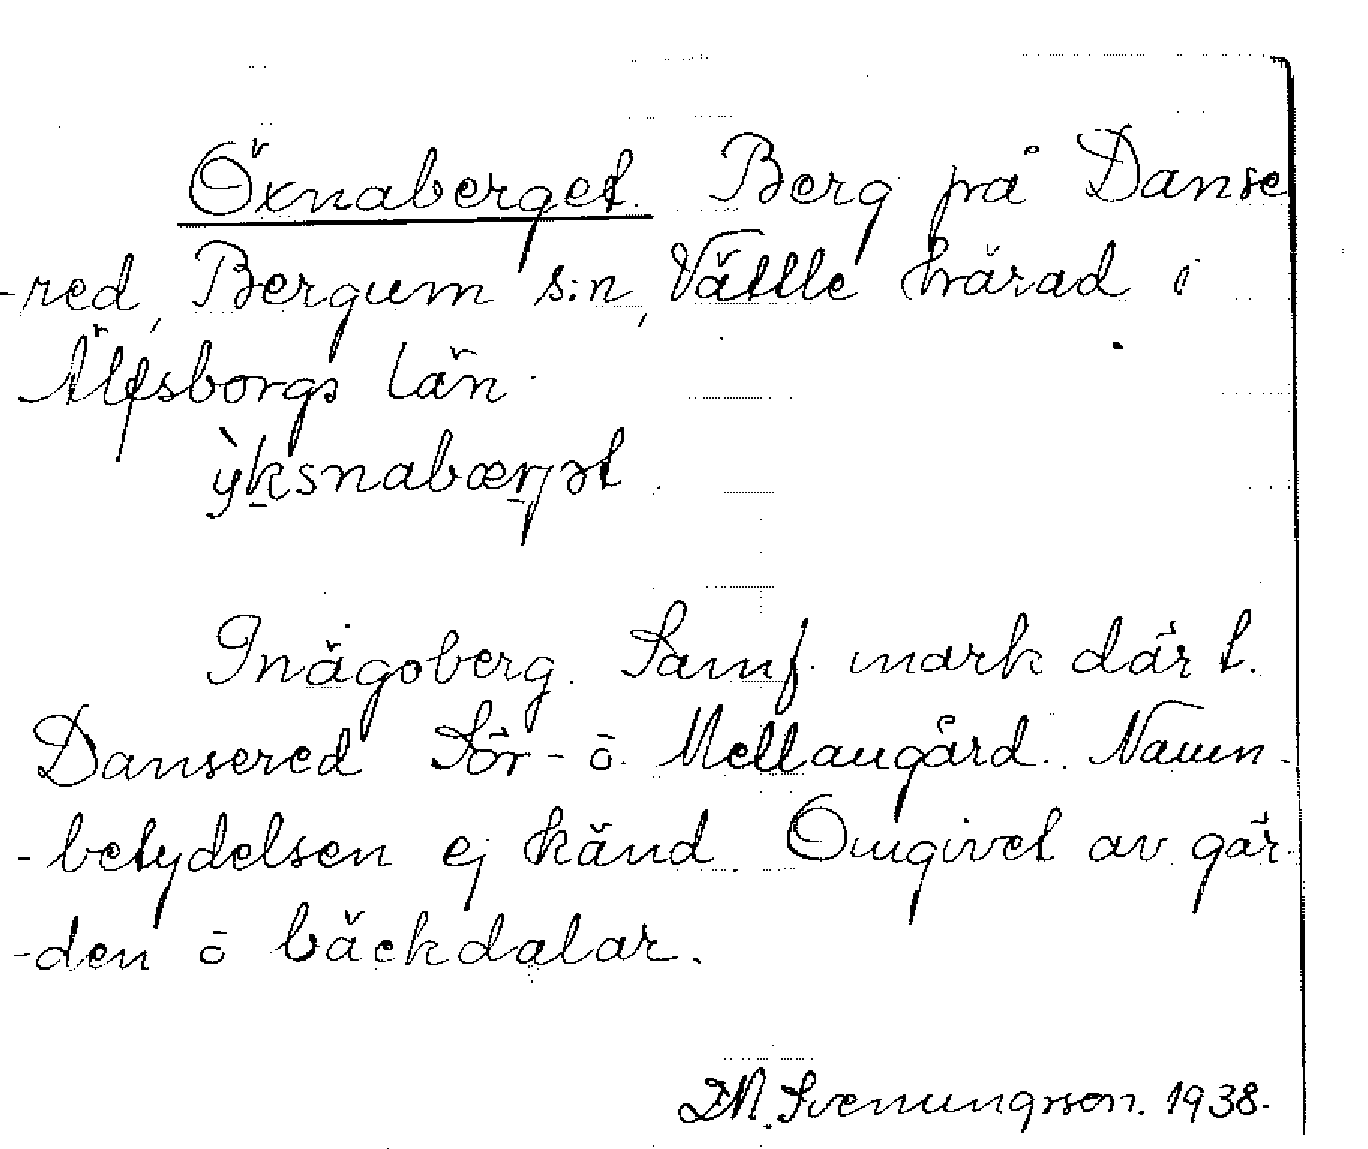 Öxnaberget. Berg på Danse
-red, Bergum s:n, Vättle härad i
Älfsborgs län.
ỳksnabærjət.
Inägoberg. Samf. mark där t.
Dansered Sör- ō Mellangård. Namn-
-betydelsen ej känd. Omgivet av går-
-den ō bäckdalar.
Svenungsson. 1938.